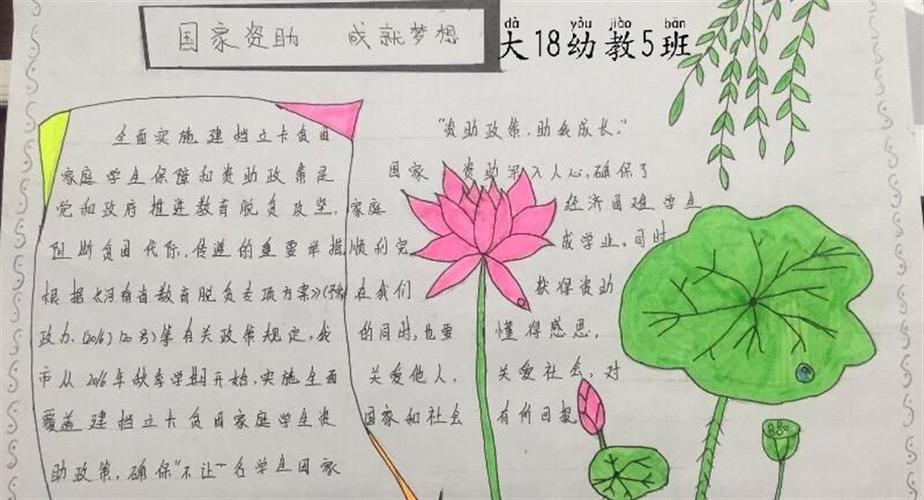 国家资助 成就梦想
dà yòu jiào bān
大18幼教5班
全面实施建档立卡贫困
家庭学生保障和资助政策是
党和政府推进教育脱贫攻坚,
阻断贫困代际,传递的重要举措
根据《河南省教育脱贫专项方案》(豫
政办.(2016)120号)等有关政策规定,我
市从2016年秋季学期开始,实施全面
覆盖建档立卡贫困家庭学生资
助政策,确保"不让一名学生因家
"资助政策.助我成长."
国家 资助深入人心,确保了
家庭 经济困难学生
顺利完 成学业,同时
在我们 获得资助
的同时,也要 懂得感恩,
关爱他人, 关爱社会,对
国家和社会 有所回报